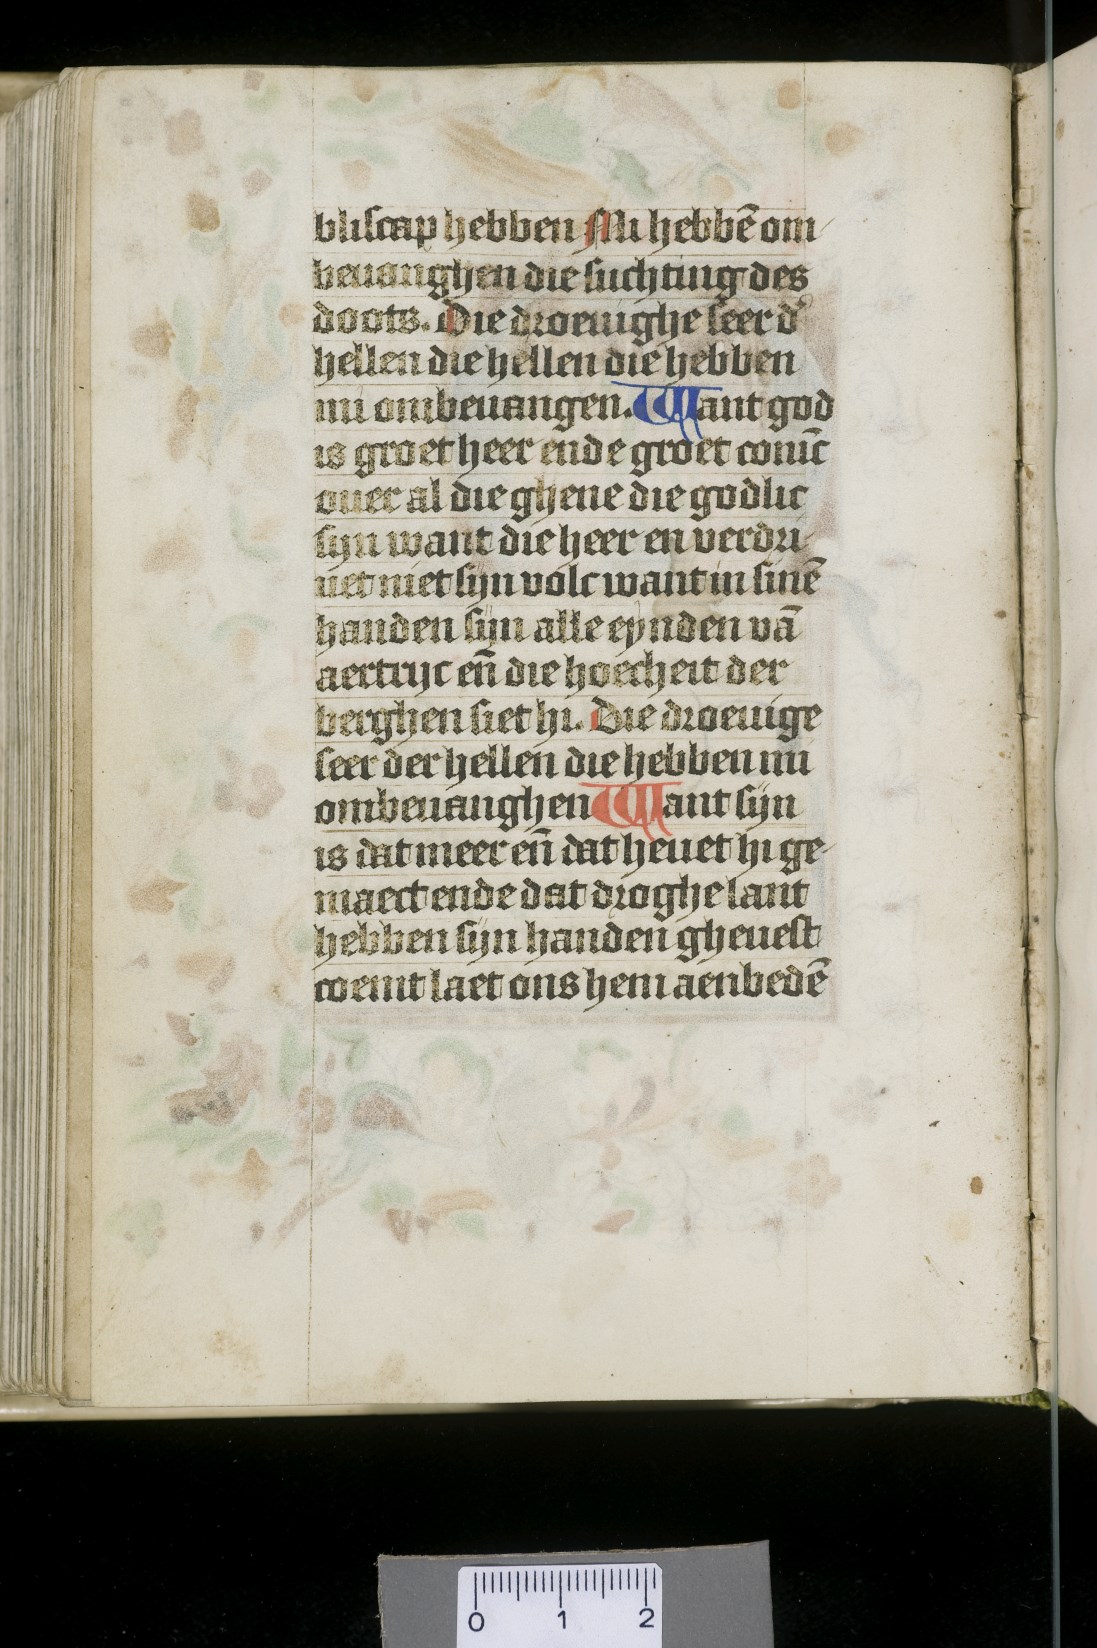 bliscap hebben Mi hebbē om-
beuanghen die suchting des
doots. Die droeuighe seer d'
hellen die hellen die hebben
mi ombeuangen. Want god
is groet heer ende groet conīc
ouer al die ghene die godlic
syn want die heer en verdri-
uet niet syn volc want in sinē
handen syn alle eynden vā
aertryc eñ die hoecheit der
berghen siet hi. Die droeuige
seer der hellen die hebben mi
ombeuanghen Want syn
is dat meer eñ dat heuet hi ge-
maect ende dat droghe lant
hebben syn handen gheuest
coemt laet ons hem aenbedē
0 1 2